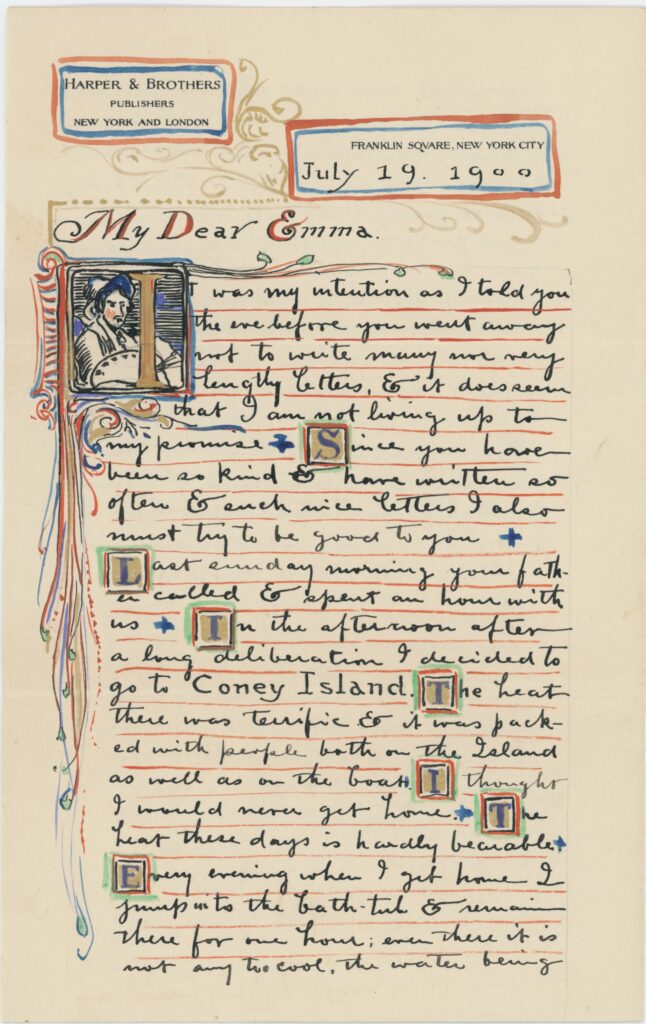 HARPER & BROTHERS
PUBLISHERS
NEW YORK AND LONDON
FRANKLIN SQVARE, NEW YORK CITY
July 19. 1900
My Dear Emma.
It was my intention as I told you
the eve before you went away
not to write many nor very
lengthy letters, & it does seem
that I am not living up to
my promise + Since you have
been so kind & have written so
often & such nice letters I also
must try to be good to you +
Last sunday morning your fath-
er called & spent an hour with
us + In the afternoon after
a long deliberation I decided to
go to Coney Island. The heat
there was terrific & it was pack-
ed with people both on the Island
as well as on the boat. I thought
I would never get home. + The
heat these days is hardly bearable +
Every evening when I get home I
jump into the bath-tub & remain
there for one hour; even there it is
not any too cool, the water being